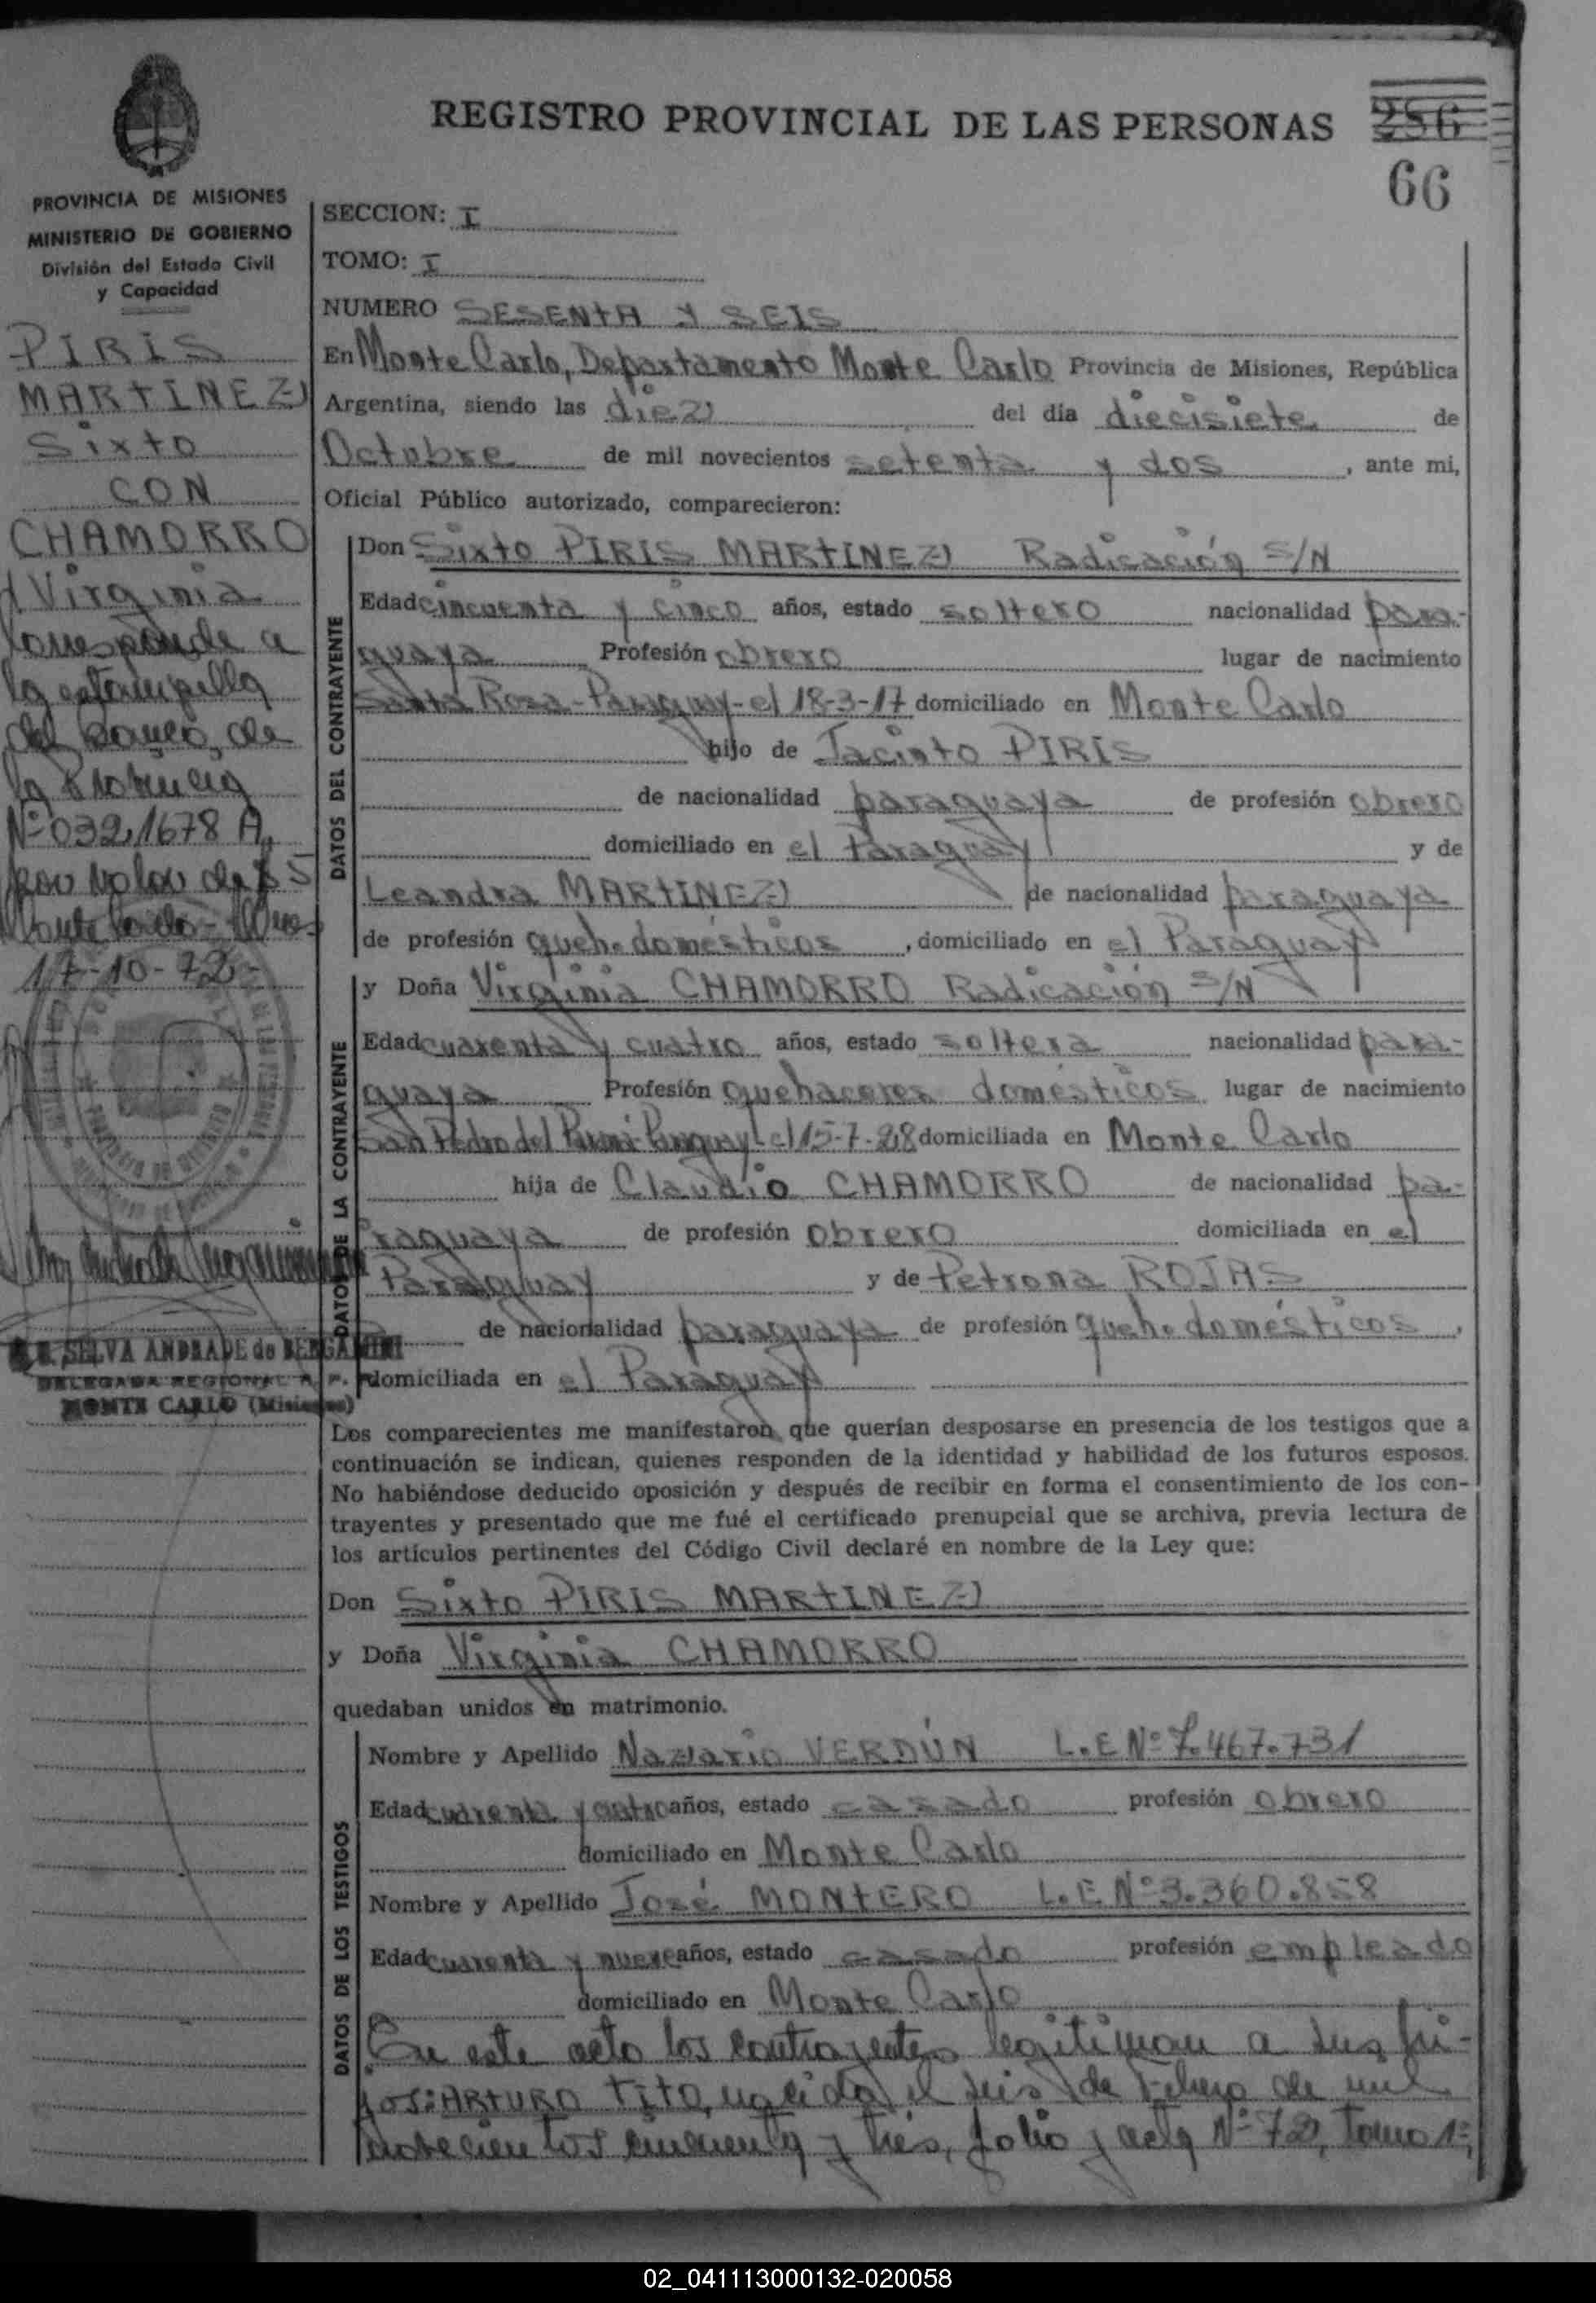 REGISTRO PROVINCIAL DE LAS PERSONAS
256
66
PROVINCIA DE MISIONES
MINISTERIO DE GOBIERNO
División del Estado Civil
y Capacidad
PIRIS
MARTINEZ
Sixto
CON
CHAMORRO
Virginia
Corresponde a
la estampilla
del Banco de
la Provincia
Nº 0321678 A,
por valor de $ 5
Monte Carlo - Mnes
17-10-72-
SELVA ANDRADE de BERGAMINI
DELEGADA REGIONAL R. P.
MONTE CARLO (Misiones)
SECCION: I
TOMO: I
NUMERO SESENTA Y SEIS
En Monte Carlo, Departamento Monte Carlo Provincia de Misiones, República
Argentina, siendo las diez del día diecisiete de
Octubre de mil novecientos setenta y dos, ante mi,
Oficial Público autorizado, comparecieron:
DATOS DEL CONTRAYENTE
Don Sixto PIRIS MARTINEZ Radicación S/N
Edad cincuenta y cinco años, estado soltero nacionalidad para-
guaya Profesión obrero lugar de nacimiento
Santa Rosa-Paraguay-el 18-3-17 domiciliado en Monte Carlo
hijo de Jacinto PIRIS
de nacionalidad paraguaya de profesión obrero
domiciliado en el Paraguay y de
Leandra MARTINEZ de nacionalidad paraguaya
de profesión queh. domésticos, domiciliado en el Paraguay
DATOS DE LA CONTRAYENTE
y Doña Virginia CHAMORRO Radicación S/N
Edad cuarenta y cuatro años, estado soltera nacionalidad para-
guaya Profesión quehaceres domésticos lugar de nacimiento
San Pedro del Paraná-Paraguay-el 15-7-28 domiciliada en Monte Carlo
hija de Claudio CHAMORRO de nacionalidad pa-
raguaya de profesión obrero domiciliada en el
Paraguay y de Petrona ROJAS
de nacionalidad paraguaya de profesión queh. domésticos,
domiciliada en el Paraguay
Los comparecientes me manifestaron que querían desposarse en presencia de los testigos que a
continuación se indican, quienes responden de la identidad y habilidad de los futuros esposos.
No habiéndose deducido oposición y después de recibir en forma el consentimiento de los con-
trayentes y presentado que me fué el certificado prenupcial que se archiva, previa lectura de
los artículos pertinentes del Código Civil declaré en nombre de la Ley que:
Don Sixto PIRIS MARTINEZ
y Doña Virginia CHAMORRO
quedaban unidos en matrimonio.
DATOS DE LOS TESTIGOS
Nombre y Apellido Nazario VERDÚN L.E Nº 7.467.731
Edad cuarenta y cuatro años, estado casado profesión obrero
domiciliado en Monte Carlo
Nombre y Apellido José MONTERO L.E Nº 3.360.858
Edad cuarenta y nueve años, estado casado profesión empleado
domiciliado en Monte Carlo
En este acto los contrayentes legitiman a sus hi-
jos: ARTURO TITO, nacido el seis de Febrero de mil
novecientos cincuenta y tres, folio y acta Nº 72, tomo 1º,
02_041113000132-020058